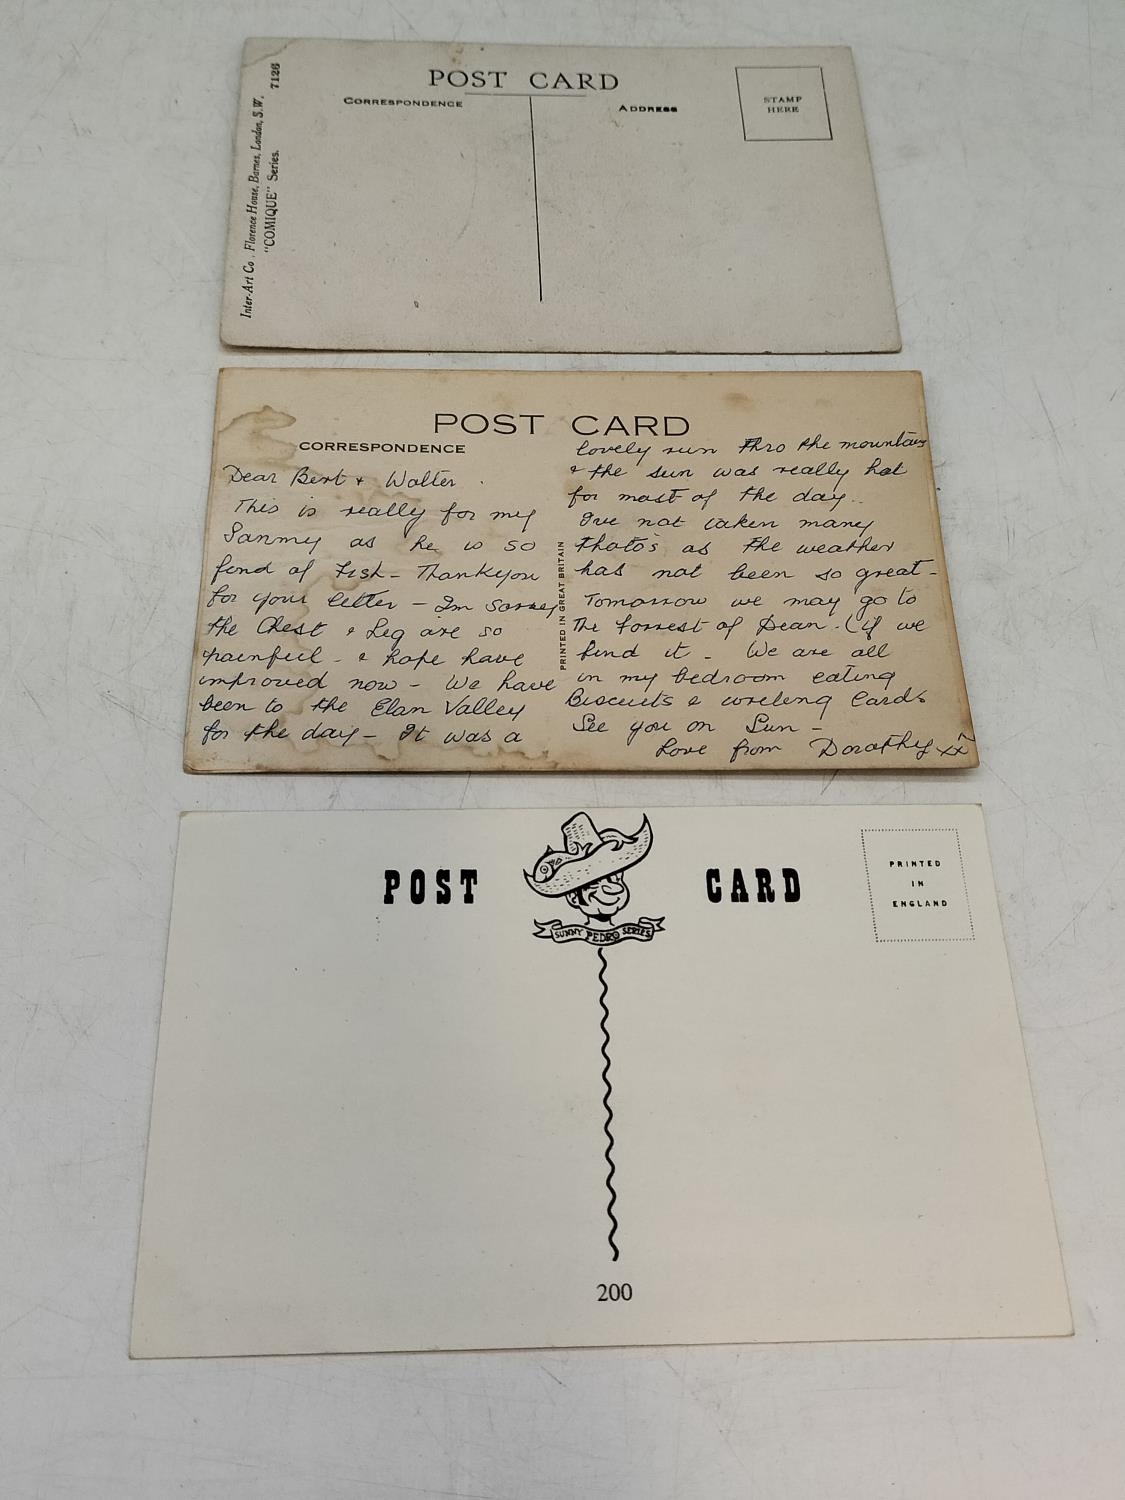 POST CARD
CORRESPONDENCE
ADDRESS
STAMP
HERE
Inter-Art Co., Florence House, Barnes, London, S.W.
"COMIQUE" Series. 7126
POST CARD
CORRESPONDENCE
Dear Bert & Walter.
This is really for my
Sammy as he is so
fond of Fish - Thankyou
for your letter - Im sorrey
the Chest & Leg are so
painfull - & hope have
improved now - We have
been to the Elan Valley
for the day - It was a
PRINTED IN GREAT BRITAIN
lovely run thro the mountains
& the sun was really hot
for most of the day..
I've not taken many
Photo's as the weather
has not been so great -
Tomorrow we may go to
The Forrest of Dean. (if we
find it - We are all
in my bedroom eating
Biscuits & writeing Cards
See you on Sun -
Love from Dorothy xx
POST CARD
SUNNY PEDRO SERIES
PRINTED
IN
ENGLAND
200